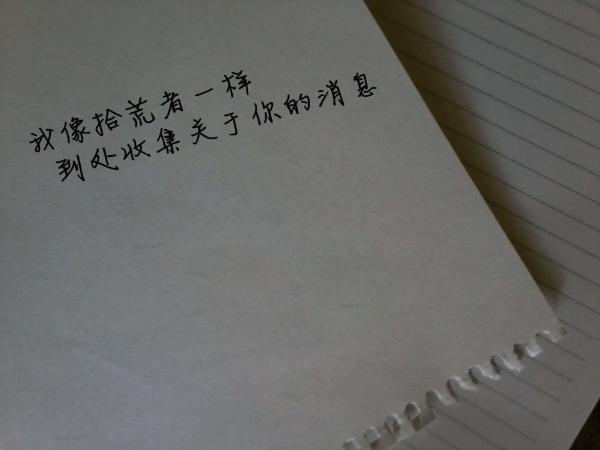 我像拾荒者一样
到处收集关于你的消息